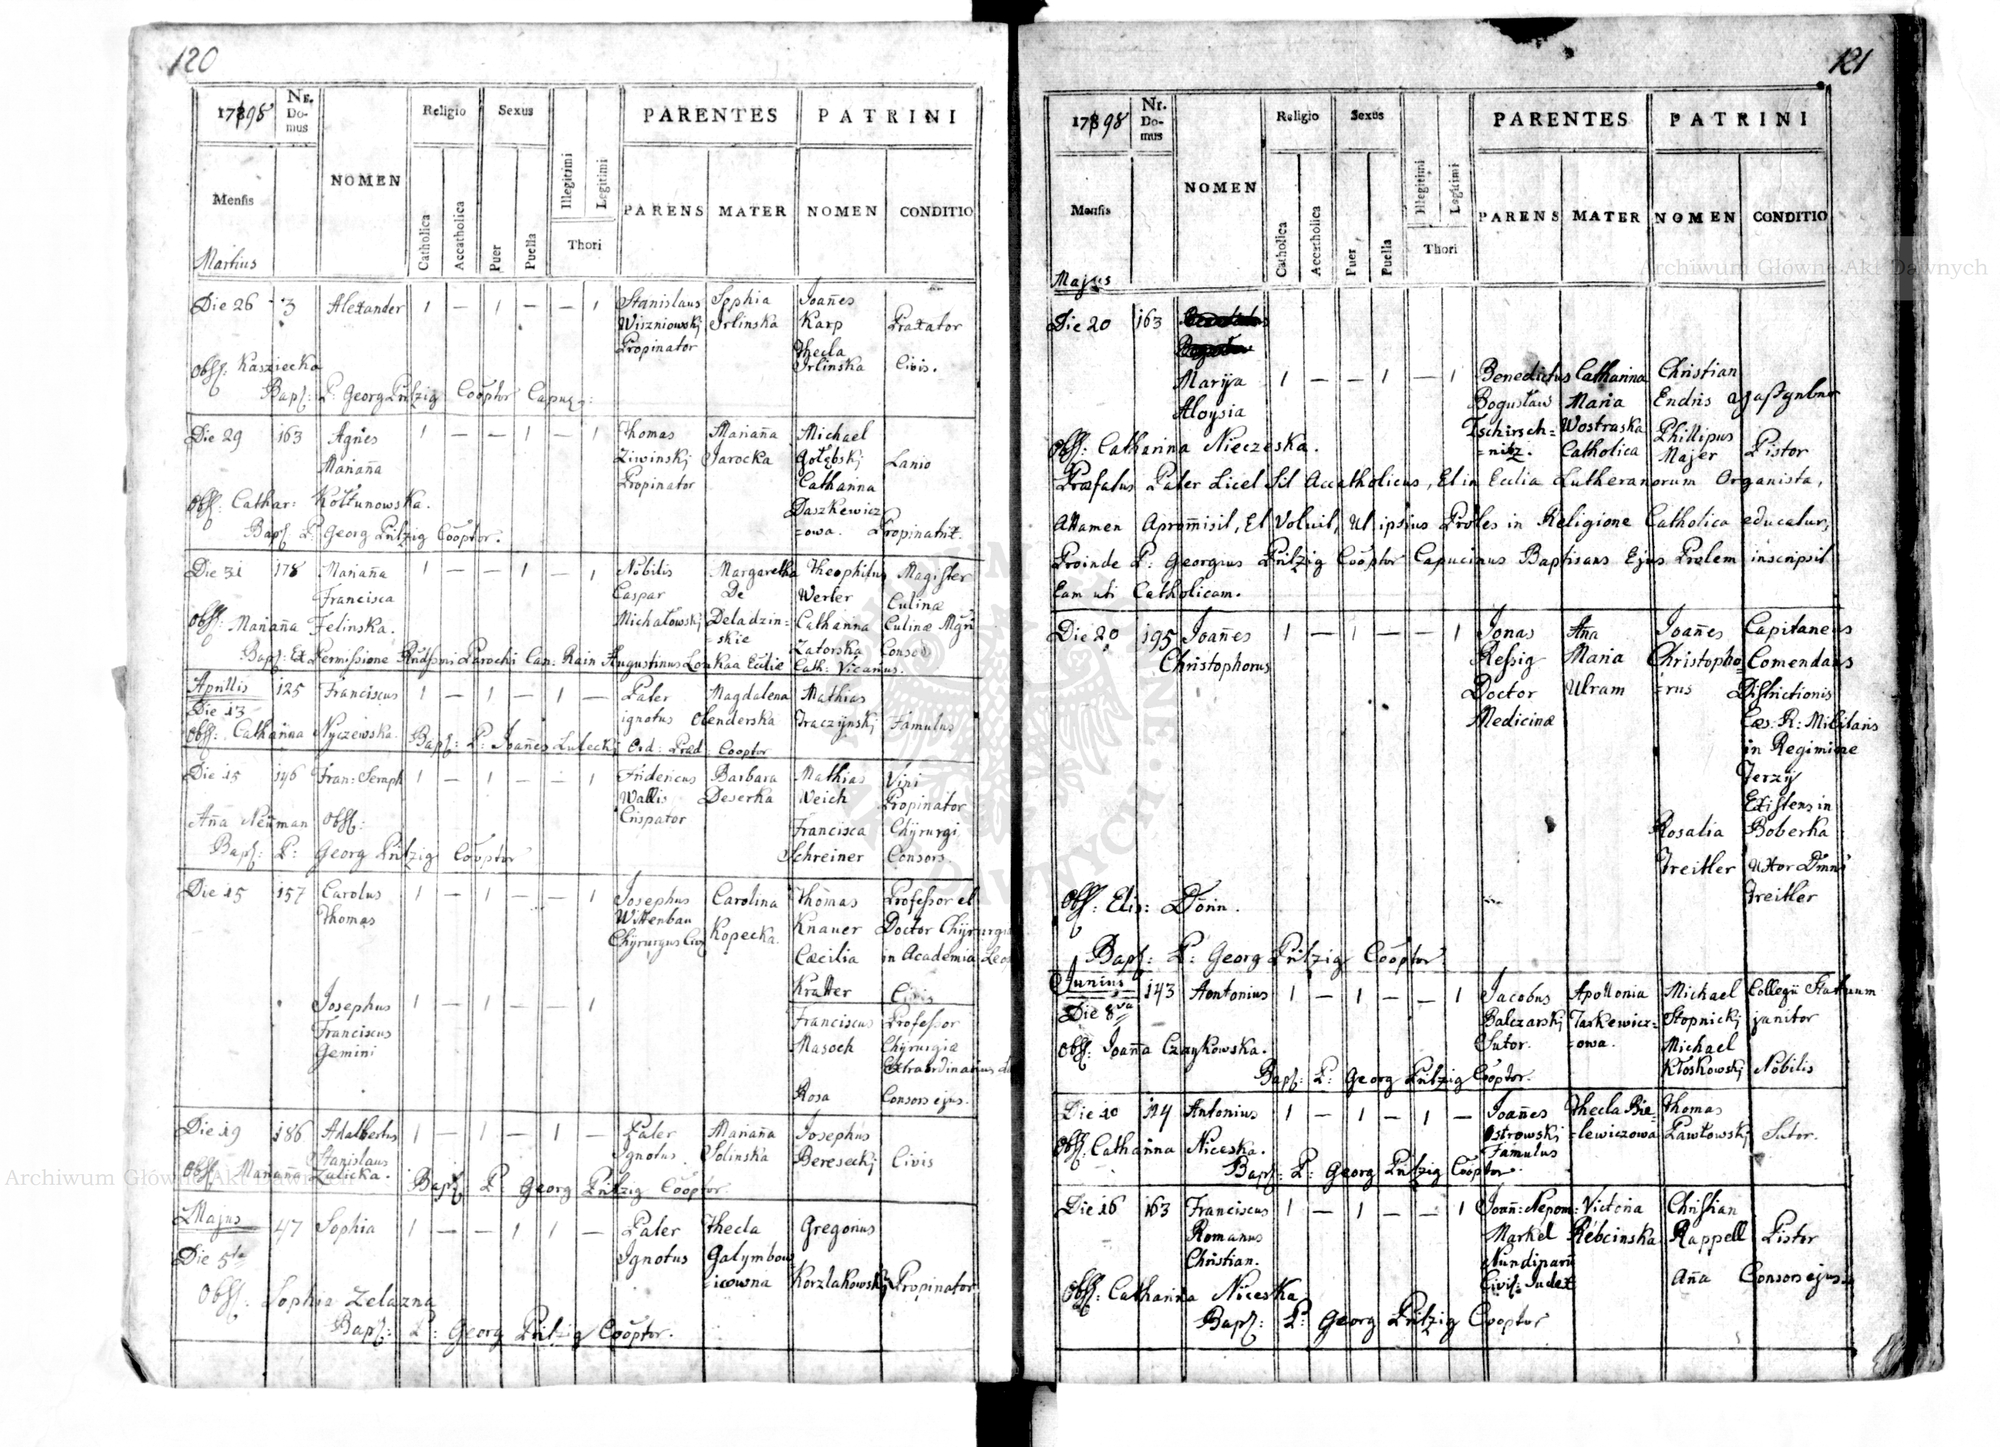 120
1798
Nr. Domus
NOMEN
Religio
Sexus
PARENTES
PATRINI
Mensis
Catholica
Accatholica
Puer
Puella
Illegitimi
Legitimi
Thori
PARENS
MATER
NOMEN
CONDITIO
Martius
Die 26 3 Alexander 1 — 1 — — 1 Stanislaus Sophia Joañes
Wiszniowskj Irlinska Karp Braxator
Propinator Thecla
Irlinska Civis.
Obst. Kasziecka
Bapt: P: Georg Pützig Cooptor Capuc:
Die 29 163 Agnes 1 — — 1 — 1 Thomas Mariaña Michael
Mariaña Ziwinskj Jarocka Gołębskj Lanio
Propinator Catharina
Obst: Cathar: Kołtunowska. Daszkewicz
Bapt P: Georg Pützig Cooptor. =owa. Propinatrix.
Die 31 178 Mariaña 1 — — 1 — 1 Nobilis Margaretha Theophilus Magister
Francisca Caspar De Werler Culinæ
Obst: Mariaña Felinska. Michałowskj Deladzin= Catharina Culinæ Mgri
=skie Zatorska Consors
Bapt: Ex Permissione Rndssmi Parochi Can: Rain Augustinus Lonkaa Ecclie Cath: Vicarius.
Aprillis 125 Franciscus 1 — 1 — 1 — Pater Magdalena Mathias
Die 13 ignotus Olenderska Traczynskj Famulus
Obst: Catharina Nyczewska. Bapt: P: Joañes Luleckj Ord: Præd: Cooptor
Die 15 146 Fran: Seraph 1 — 1 — — 1 Fridericus Barbara Mathias Vini
Wallis Deserka Weich Propinator
Crispator Francisca Chyrurgi
Aña Neüman Obst: Schreiner Consors
Bapt: P: Georg Pützig Cooptor
Die 15 157 Carolus 1 — 1 — — 1 Josephus Carolina Thomas Professor et
Thomas Wittenbau Kopecka. Knauer Doctor Chyrurgiæ
Chyrurgus Civ Cæcilia in Academia Leop
Kratter Civis
Josephus 1 — 1 — — 1
Franciscus Franciscus Professor
Gemini Masoch Chyrurgiæ
Extraordinarius
Rosa Consors ejus.
Die 19 186 Adalbertus 1 — 1 — 1 — Pater Mariaña Josephus
Stanislaus Ignotus Solinska Bereseckj Civis
Obst: Mariaña Zalicka. Bapt P: Georg Pützig Cooptor.
Majus 47 Sophia 1 — — 1 1 — Pater Thecla Gregorius
Die 5ta Ignotus Galymbow
=icowna Korzlakowskj Propinator
Obst: Sophia Zelazna
Bapt: P: Georg Pützig Cooptor.
121
1798
Nr. Domus
NOMEN
Religio
Sexus
PARENTES
PATRINI
Mensis
Catholica
Accatholica
Puer
Puella
Illegitimi
Legitimi
Thori
PARENS
MATER
NOMEN
CONDITIO
Majus
Die 20 163
Marÿa 1 — — 1 — 1 Benedictus Catharina Christian
Aloysia Bogusław Maria Endris
Tschirsch= Wostraska Phillipus
Obst: Catharina Nieczeska. =nitz. Catholica Majer Pistor
Præfatus Pater Licet Sit Accatholicus, Et in Ecclia Lutheranorum Organista,
Attamen Apromisit, Et Voluit, Ut ipsius Proles in Religione Catholica educatur,
Proinde P: Georgius Pützig Cooptor Capucinus Baptisans Ejus Prolem inscripsit
Eam uti Catholicam.
Die 20 195 Joañes 1 — 1 — — 1 Jonas Aña Joañes Capitaneus
Christophorus Ressig Maria Christopho= Comendans
Doctor Ulram =rus Districtionis
Medicinæ Cæs: R: Militaris
in Regimine
Jerzy
Existens in
Rosalia Boberka
Treitler Uxor Dmni
Treitler
Obst: Elis: Dörin.
Bapt: P: Georg Pützig Cooptor
Junius 143 Aontonius 1 — 1 — — 1 Jacobus Apollonia Michael Collegii Statuum
Die 8va Balczarskj Tarkewicz= Stopnickj janitor
Obst: Joaña Czaykowska. Sutor. =owa. Michael
Kłoskowskj Nobilis
Bapt: P: Georg Pützig Cooptor.
Die 10 124 Antonius 1 — 1 — 1 — Joañes Thecla Bie= Thomas
Ostrowskj =lewiczowa Pawłowskj Sutor.
Obst: Catharina Niceska. Famulus
Bapt: P: Georg Pützig Cooptor.
Die 16 163 Franciscus 1 — 1 — — 1 Joañ: Nepom: Victoria Christian
Romanus Markel Rebcinska Rappell Pistor
Christian. Nundinarii
Civil: Judex Aña Consors ejus.
Obst: Catharina Niceska
Bapt: P: Georg Pützig Cooptor
Archiwum Główne Akt Dawnych
Archiwum Główne Akt Dawnych